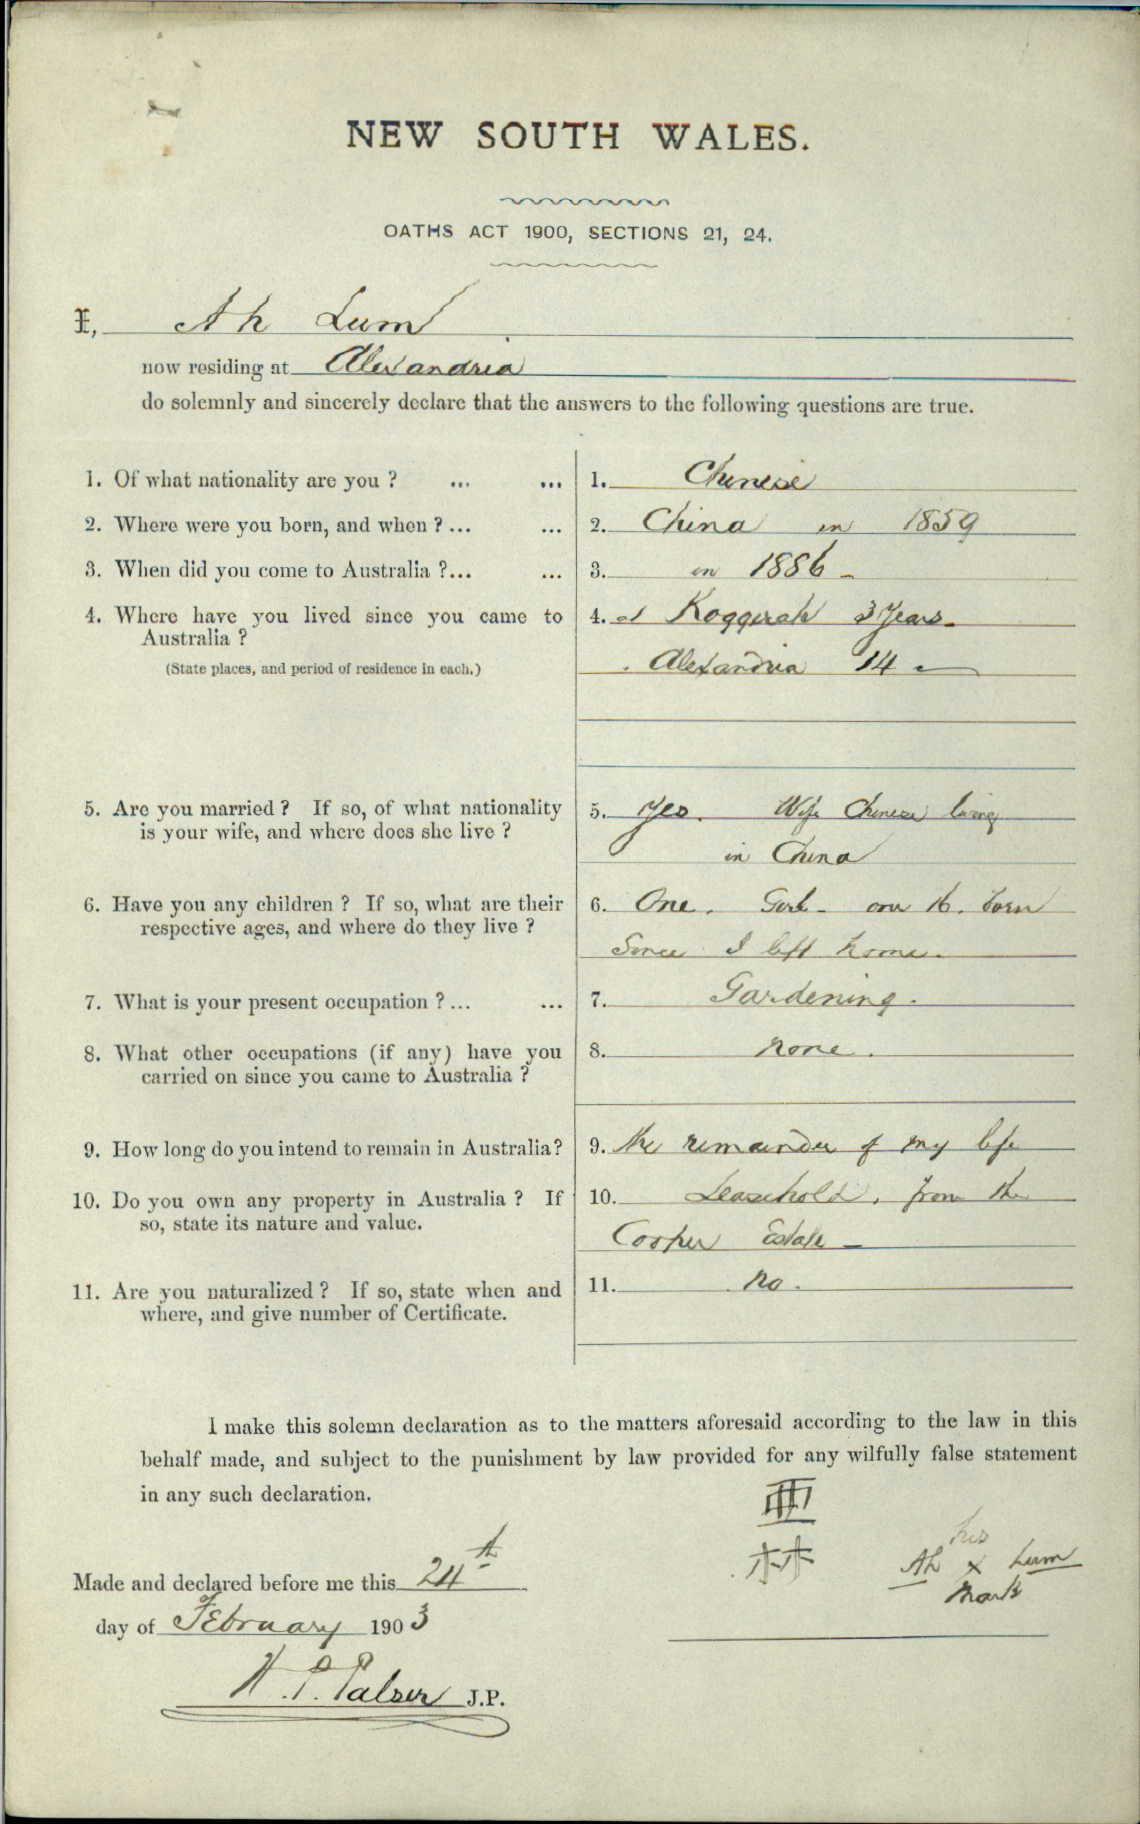 NEW SOUTH WALES.
OATHS ACT 1900, SECTIONS 21, 24.
I, Ah Lum
now residing at Alexandria
do solemnly and sincerely declare that the answers to the following questions are true.
1. Of what nationality are you ? ... ... 1. Chinese
2. Where were you born, and when ? ... ... 2. China in 1859
3. When did you come to Australia ?... ... 3. in 1886 -
4. Where have you lived since you came to 4. at Koggerah 3 Years -
Australia ?
(State places, and period of residence in each.) Alexandria 14 -
5. Are you married ? If so, of what nationality 5. Yes. Wife Chinese living
is your wife, and where does she live ? in China
6. Have you any children ? If so, what are their 6. One. Girl - over 16. born
respective ages, and where do they live ? Since I left home.
7. What is your present occupation ? ... ... 7. Gardening.
8. What other occupations (if any) have you 8. none.
carried on since you came to Australia ?
9. How long do you intend to remain in Australia? 9. the remainder of my life
10. Do you own any property in Australia ? If 10. Leasehold, from the
so, state its nature and value. Cooper Estate -
11. Are you naturalized ? If so, state when and 11. no.
where, and give number of Certificate.
I make this solemn declaration as to the matters aforesaid according to the law in this
behalf made, and subject to the punishment by law provided for any wilfully false statement
in any such declaration.
亜
林
his
Ah x Lum
mark
Made and declared before me this 24th
day of February 1903
J.P.